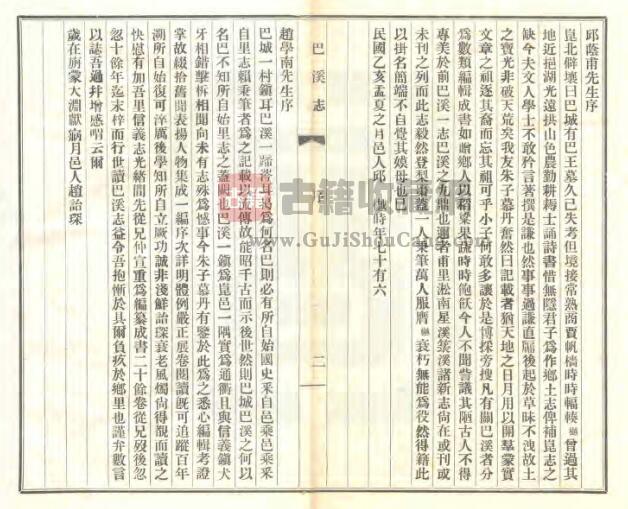 邱蔭甫先生序
崑北僻壤曰巴城有巴王墓久已失考但境接常熟商賈帆檣時時輻輳 曾過其
地近挹湖光遠拱山色農勤耕耨士誦詩書惜無隱君子為作鄉土志俾補崑志之
缺今夫文人學士不敢矜言著撰是謙也然事事過謙直屬後起於草昧不洩故土
之寶光非破天荒矣我友朱子墓丹奮然曰記載者猶天地之日月用以開羣蒙實
文章之祖逐其裔而忘其祖可乎小子何敢多讓於是博採旁搜凡有關巴溪者分
為數類編輯成書如噲鄉人以稻粱果蔬時時飽飫今人不聞嘗議其陋古人不得
專美於前巴溪一志巴溪之九鼎也邇者里中淞南星溪菉溪諸新志尚在或刊或
未刊之列而此志毅然登梨棗蓋一人秉筆萬人服膺 衰朽無能為役然得籍此
以掛名簡端不自覺其娘母也已
民國乙亥孟夏之月邑人邱 時年七十有六
巴溪志
序
二
趙學南先生序
巴城一村鎮耳巴溪一蹄涔耳曷為何名巴則必有所自始國史釆自邑乘邑乘釆
自里志賴秉筆者為之記載以流傳故能昭千古而示後世然則巴城巴溪之何以
名巴不知所自始里志之蓋闕也巴溪一鎮為崑邑一隅實為通衢且與信義鎮犬
牙相錯擊柝相聞向未有志殊為憾事今朱子墓丹有鑒於此為之悉心編輯考證
掌故綴拾舊聞表揚人物集成一編序次詳明體例嚴正展卷閱讀既可追蹤百年
溯所自始復可淬厲後學知所自立厥功誠非淺鮮詒琛衰老風燭尚得覩而讀之
快慰有加吾里信義志光緒間先從兄仲宣重為編纂成書二十餘卷從兄歿後忽
忽十餘年迄未梓而行世讀巴溪志益令吾抱慚於具爾負疚於鄉里也謹弁數言
以誌吾過幷增感喟云爾
歲在旃蒙大淵獻病月邑人趙詒琛
古籍收藏
www.GuJiShouCang.com